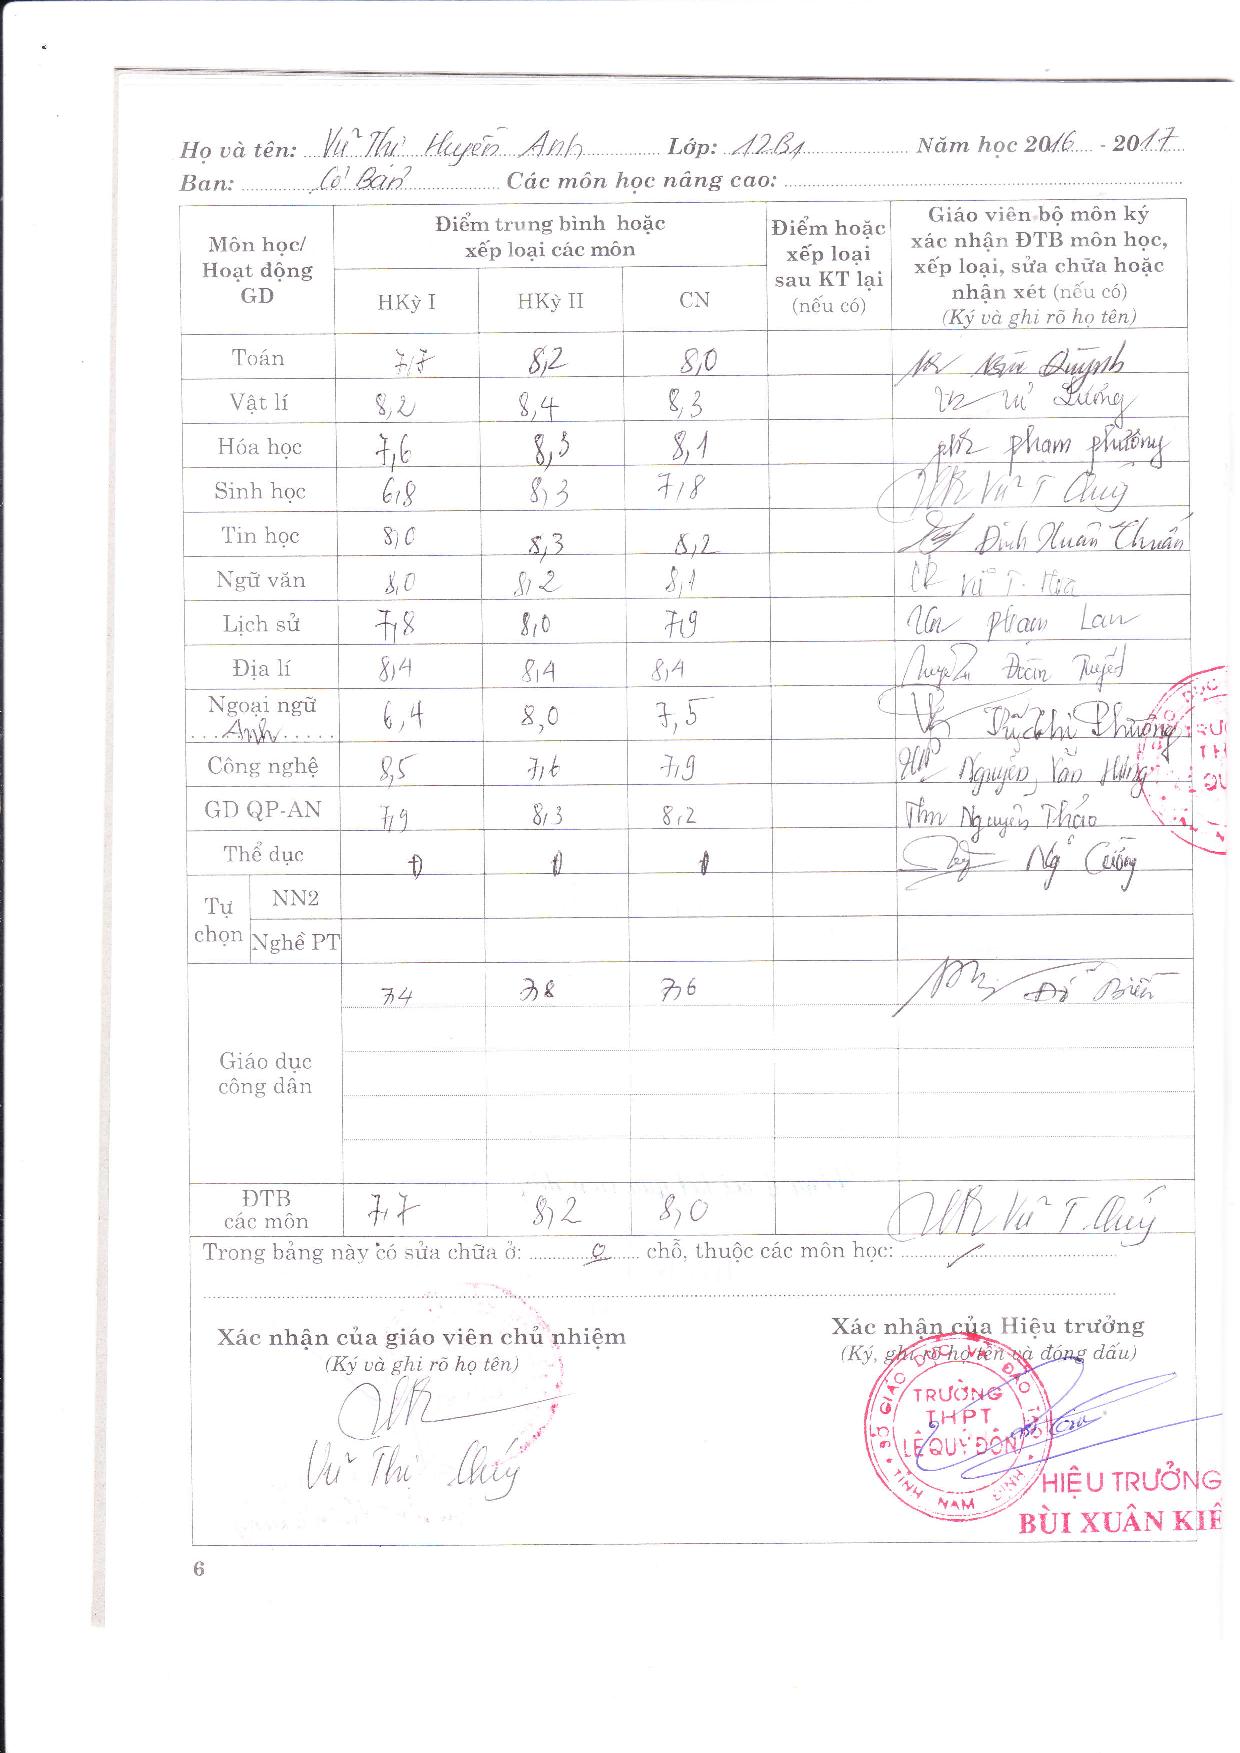 Họ và tên: Vũ Thị Huyền Anh Lớp: 12B1 Năm học 2016 - 2017
Ban: Cơ Bản Các môn học nâng cao:
Môn học/ Hoạt động GD
Điểm trung bình hoặc xếp loại các môn
Điểm hoặc xếp loại sau KT lại (nếu có)
Giáo viên bộ môn ký xác nhận ĐTB môn học, xếp loại, sửa chữa hoặc nhận xét (nếu có) (Ký và ghi rõ họ tên)
HKỳ I HKỳ II CN
Toán 7,7 8,2 8,0 Quỳnh
Vật lí 8,2 8,4 8,3 Lượng
Hóa học 7,6 8,3 8,1 phạm phương
Sinh học 6,8 8,3 7,8 Vũ T Quý
Tin học 8,0 8,3 8,2 Đinh Xuân Thuấn
Ngữ văn 8,0 8,2 8,1 Vũ T. Hoa
Lịch sử 7,8 8,0 7,9 phạm Lan
Địa lí 8,4 8,4 8,4 Đoàn Tuyết
Ngoại ngữ
Anh 6,4 8,0 7,5 Thị Phượng
Công nghệ 8,5 7,6 7,9 Nguyễn Văn Hùng
GD QP-AN 7,9 8,3 8,2 Nguyễn Thảo
Thể dục Đ Đ Đ Ngô Cường
Tự chọn
NN2
Nghề PT
Giáo dục công dân 7,4 7,8 7,6 Đỗ Biển
ĐTB các môn 7,7 8,2 8,0 Vũ T. Quý
Trong bảng này có sửa chữa ở: 0 chỗ, thuộc các môn học: /
Xác nhận của giáo viên chủ nhiệm
(Ký và ghi rõ họ tên)
Vũ Thị Quý
Xác nhận của Hiệu trưởng
(Ký, ghi rõ họ tên và đóng dấu)
SỞ GIÁO DỤC VÀ ĐÀO TẠO
TRƯỜNG
THPT
LÊ QUÝ ĐÔN
TỈNH NAM ĐỊNH
HIỆU TRƯỞNG
BÙI XUÂN KIÊ
6